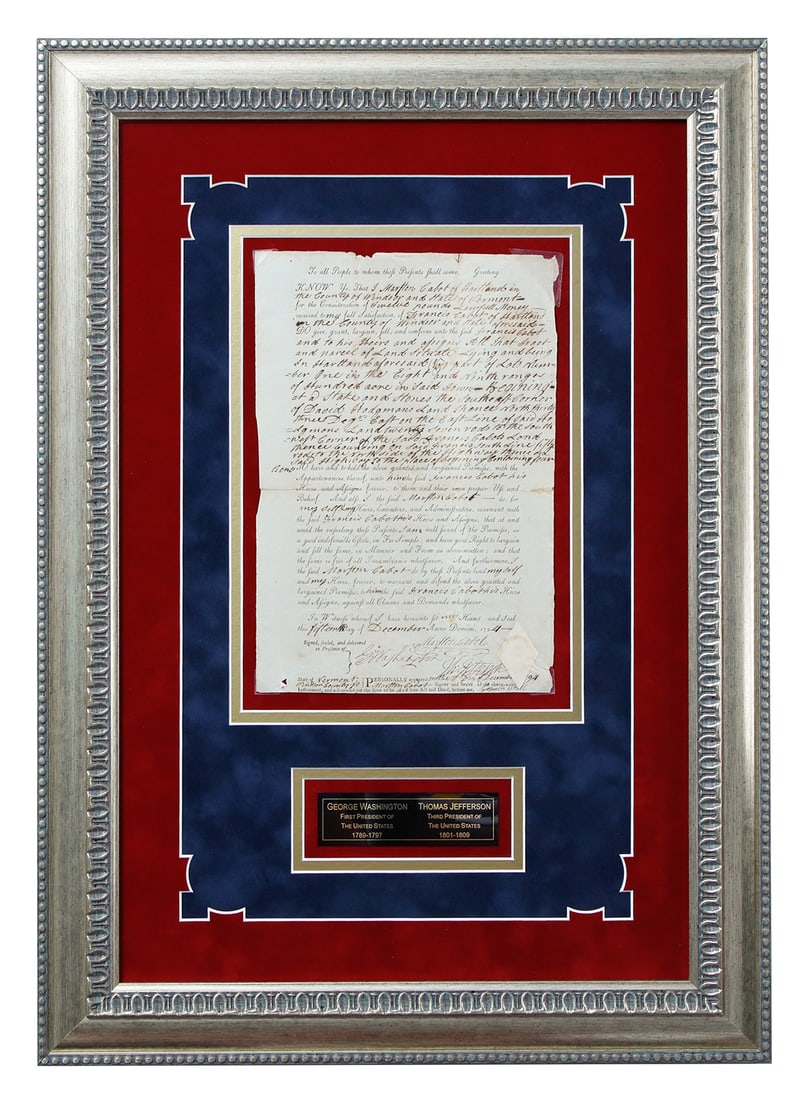 To all People to whom these Presents shall come, Greeting.
KNOW Ye, That I Marston Cabot of Hartland in
the County of Windsor and State of Vermont
for the Consideration of Twelve pounds Lawfull Money
received to my full Satisfaction of Francis Cabot of Hartland
in the County of Windsor and State aforesaid
DO give, grant, bargain, sell, and confirm unto the said Francis Cabot
and to his Heirs and assigns All that Tract
and parcel of Land Situate Lying and being
In Hartland aforesaid part of Lot Num-
ber One in the Eight and Ninth ranges
of Hundred acre in said Town Begining
at a Stake and Stones the Southeast Corner
of David Hodgmans Land thence North thirty
three Degs East on the East Line of said H
dgmans Land twenty seven rods to the South
west Corner of the said Francis Cabots Land
thence bounding on said Francis South Line fifty
rods to the North side of the Highway thence on
said Highway to the place of begining Containing four
acres
have and to hold the above granted and bargained Premises, with the
Appurtenances thereof, unto him the said Francis Cabot his
Heirs and Assigns forever, to them and their own proper Use and
Behoof. And also, I the said Marston Cabot do, for
my self my Heirs, Executors, and Administrators, covenant with
the said Francis Cabot his Heirs and Assigns, that at and
until the ensealing these Presents I am well seized of the Premises, as
a good indefeasible Estate, in Fee Simple; and have good Right to bargain
and sell the same, in Manner and Form as above-written; and that
the same is free of all Incumbrances whatsoever. And furthermore, I
the said Marston Cabot do by these Presents bind my self
and my Heirs, forever, to warrant and defend the above granted and
bargained Premises, to him the said Francis Cabot his Heirs
and Assigns, against all Claims and Demands whatsoever.
In Witness whereof, I have hereunto set my Hand and Seal
this fifteenth Day of December Anno Domini, 1794
Signed, sealed, and delivered
in Presence of
Marston Cabot
Go Washington
Th Jefferson
State of Vermont
PERSONALLY
Marston Cabot Signer and Sealer of the
Instrument, and acknowledged the same to be free Act and Deed, before me,
GEORGE WASHINGTON
FIRST PRESIDENT OF
THE UNITED STATES
1789-1797
THOMAS JEFFERSON
THIRD PRESIDENT OF
THE UNITED STATES
1801-1809